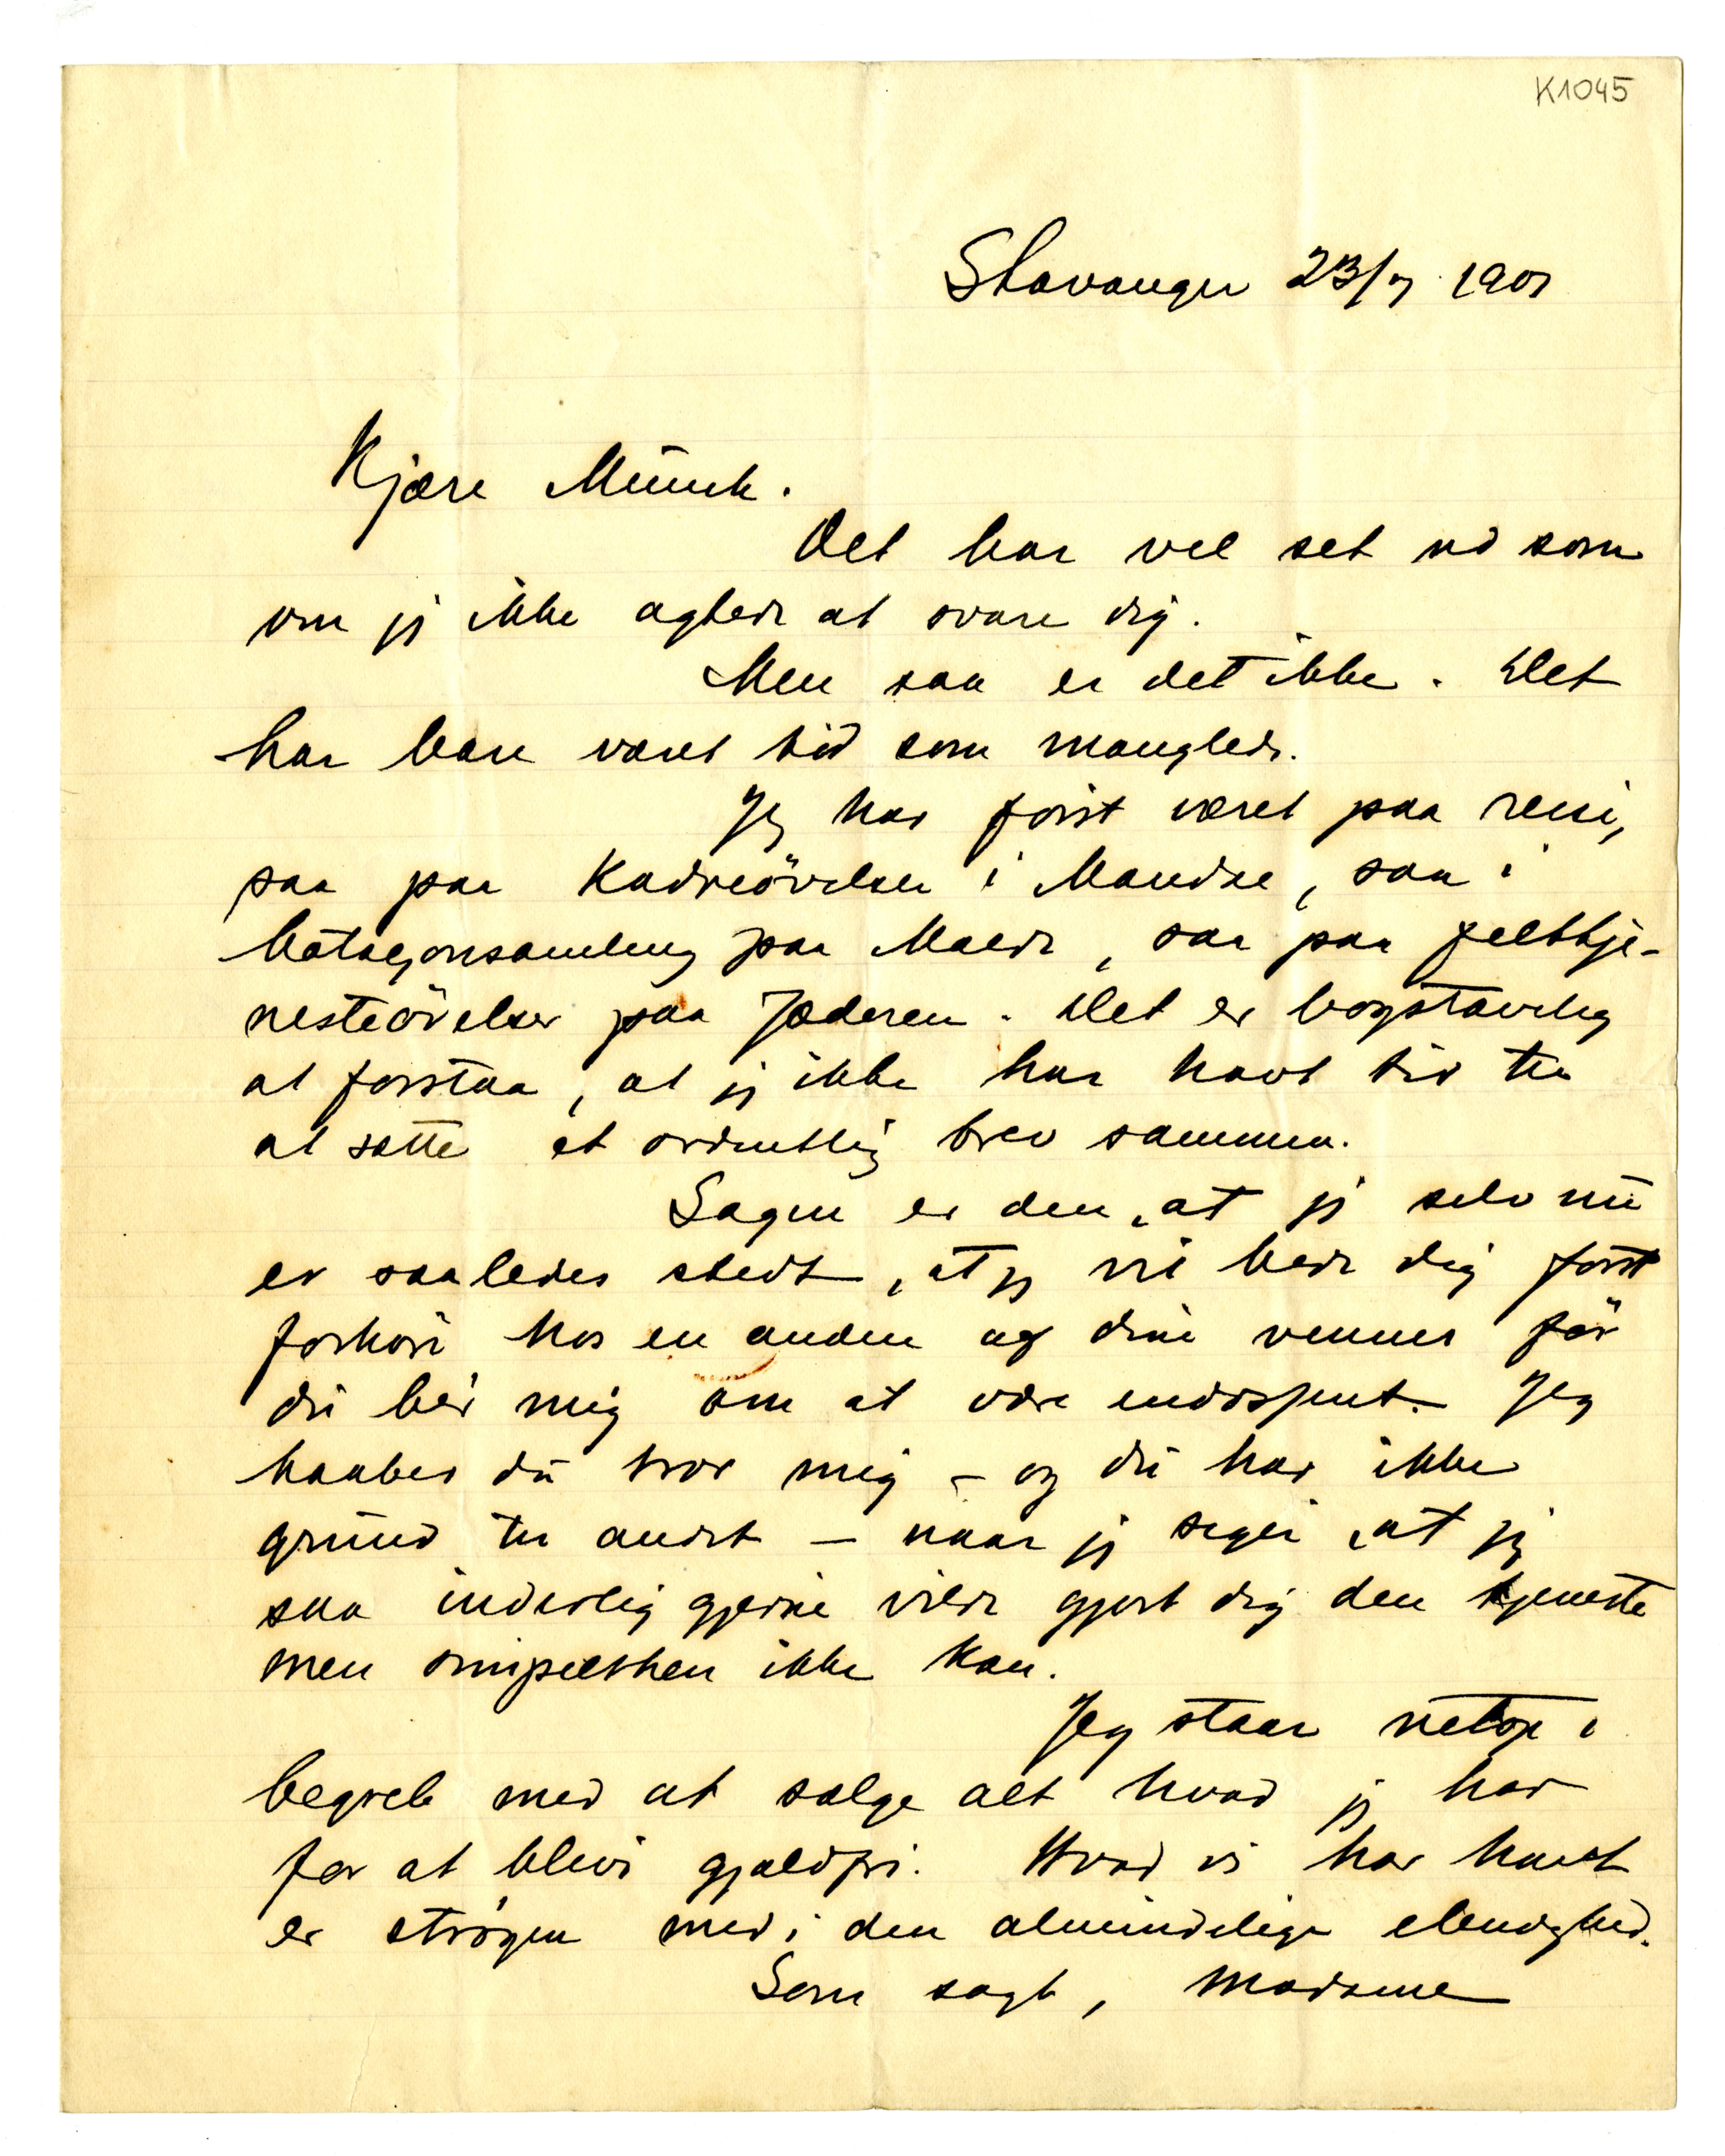 K1045
Stavanger 23/7 1901
Kjære Münch.
Det har vel set ud som
om jeg ikke agtede at svare dig.
Men saa er det ikke. Det
har bare været tid som manglede.
Jeg har först været paa reise,
saa paa Kadreövelser i Mandal, saa i
bataljonsamling paa Malde, saa paa felttje-
nesteövelser paa Jæderen. Det er bogstavelig
at forstaa, at jeg ikke har havt tid til
at sætte et ordentlig brev sammen.
Sagen er den, at jeg selv nü
er saaledes stedt, at jeg vil bede dig först
forhöre hos en anden af dine venner för
dü ber mig om at være endossent. Jeg
haaber dü tror mig – og dü har ikke
gründ til andet – naar jeg siger, at jeg
saa inderlig gjerne vilde gjort dig den tjeneste
men simpelthen ikke kan.
Jeg staar netop i
begreb med at sælge alt hvad jeg har
for at blive gjældfri. Hvad vi har havt
er strögen med i den almindelige elendighed.
Som sagt, Madame